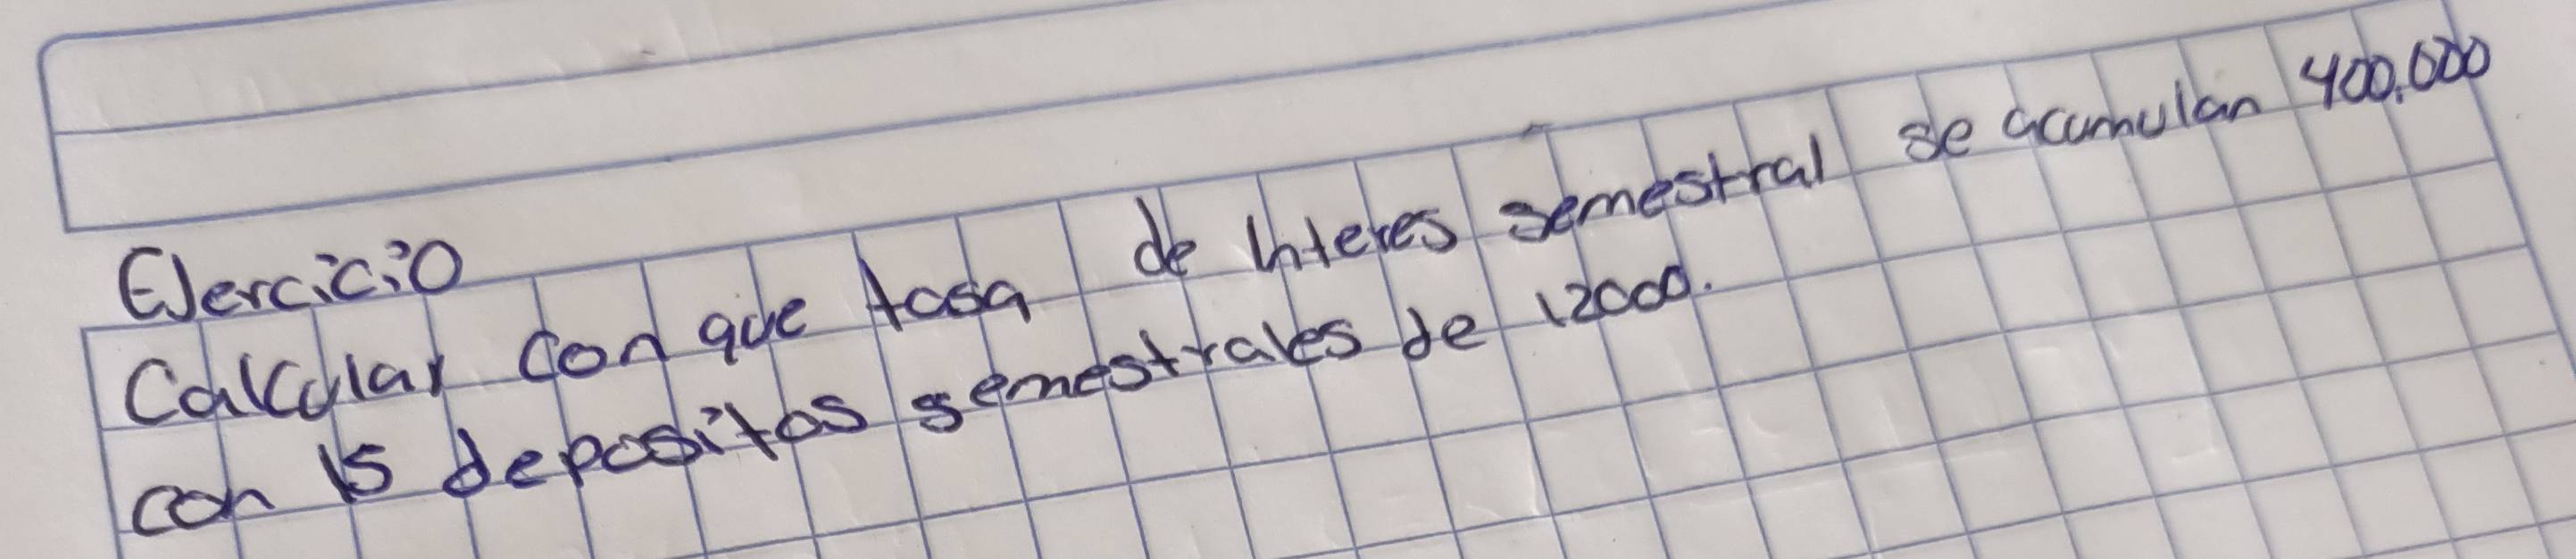 Ejercicio
Calcular con que tasa de interes semestral se acumulan 400,000
con 15 depositos semestrales de 12000.